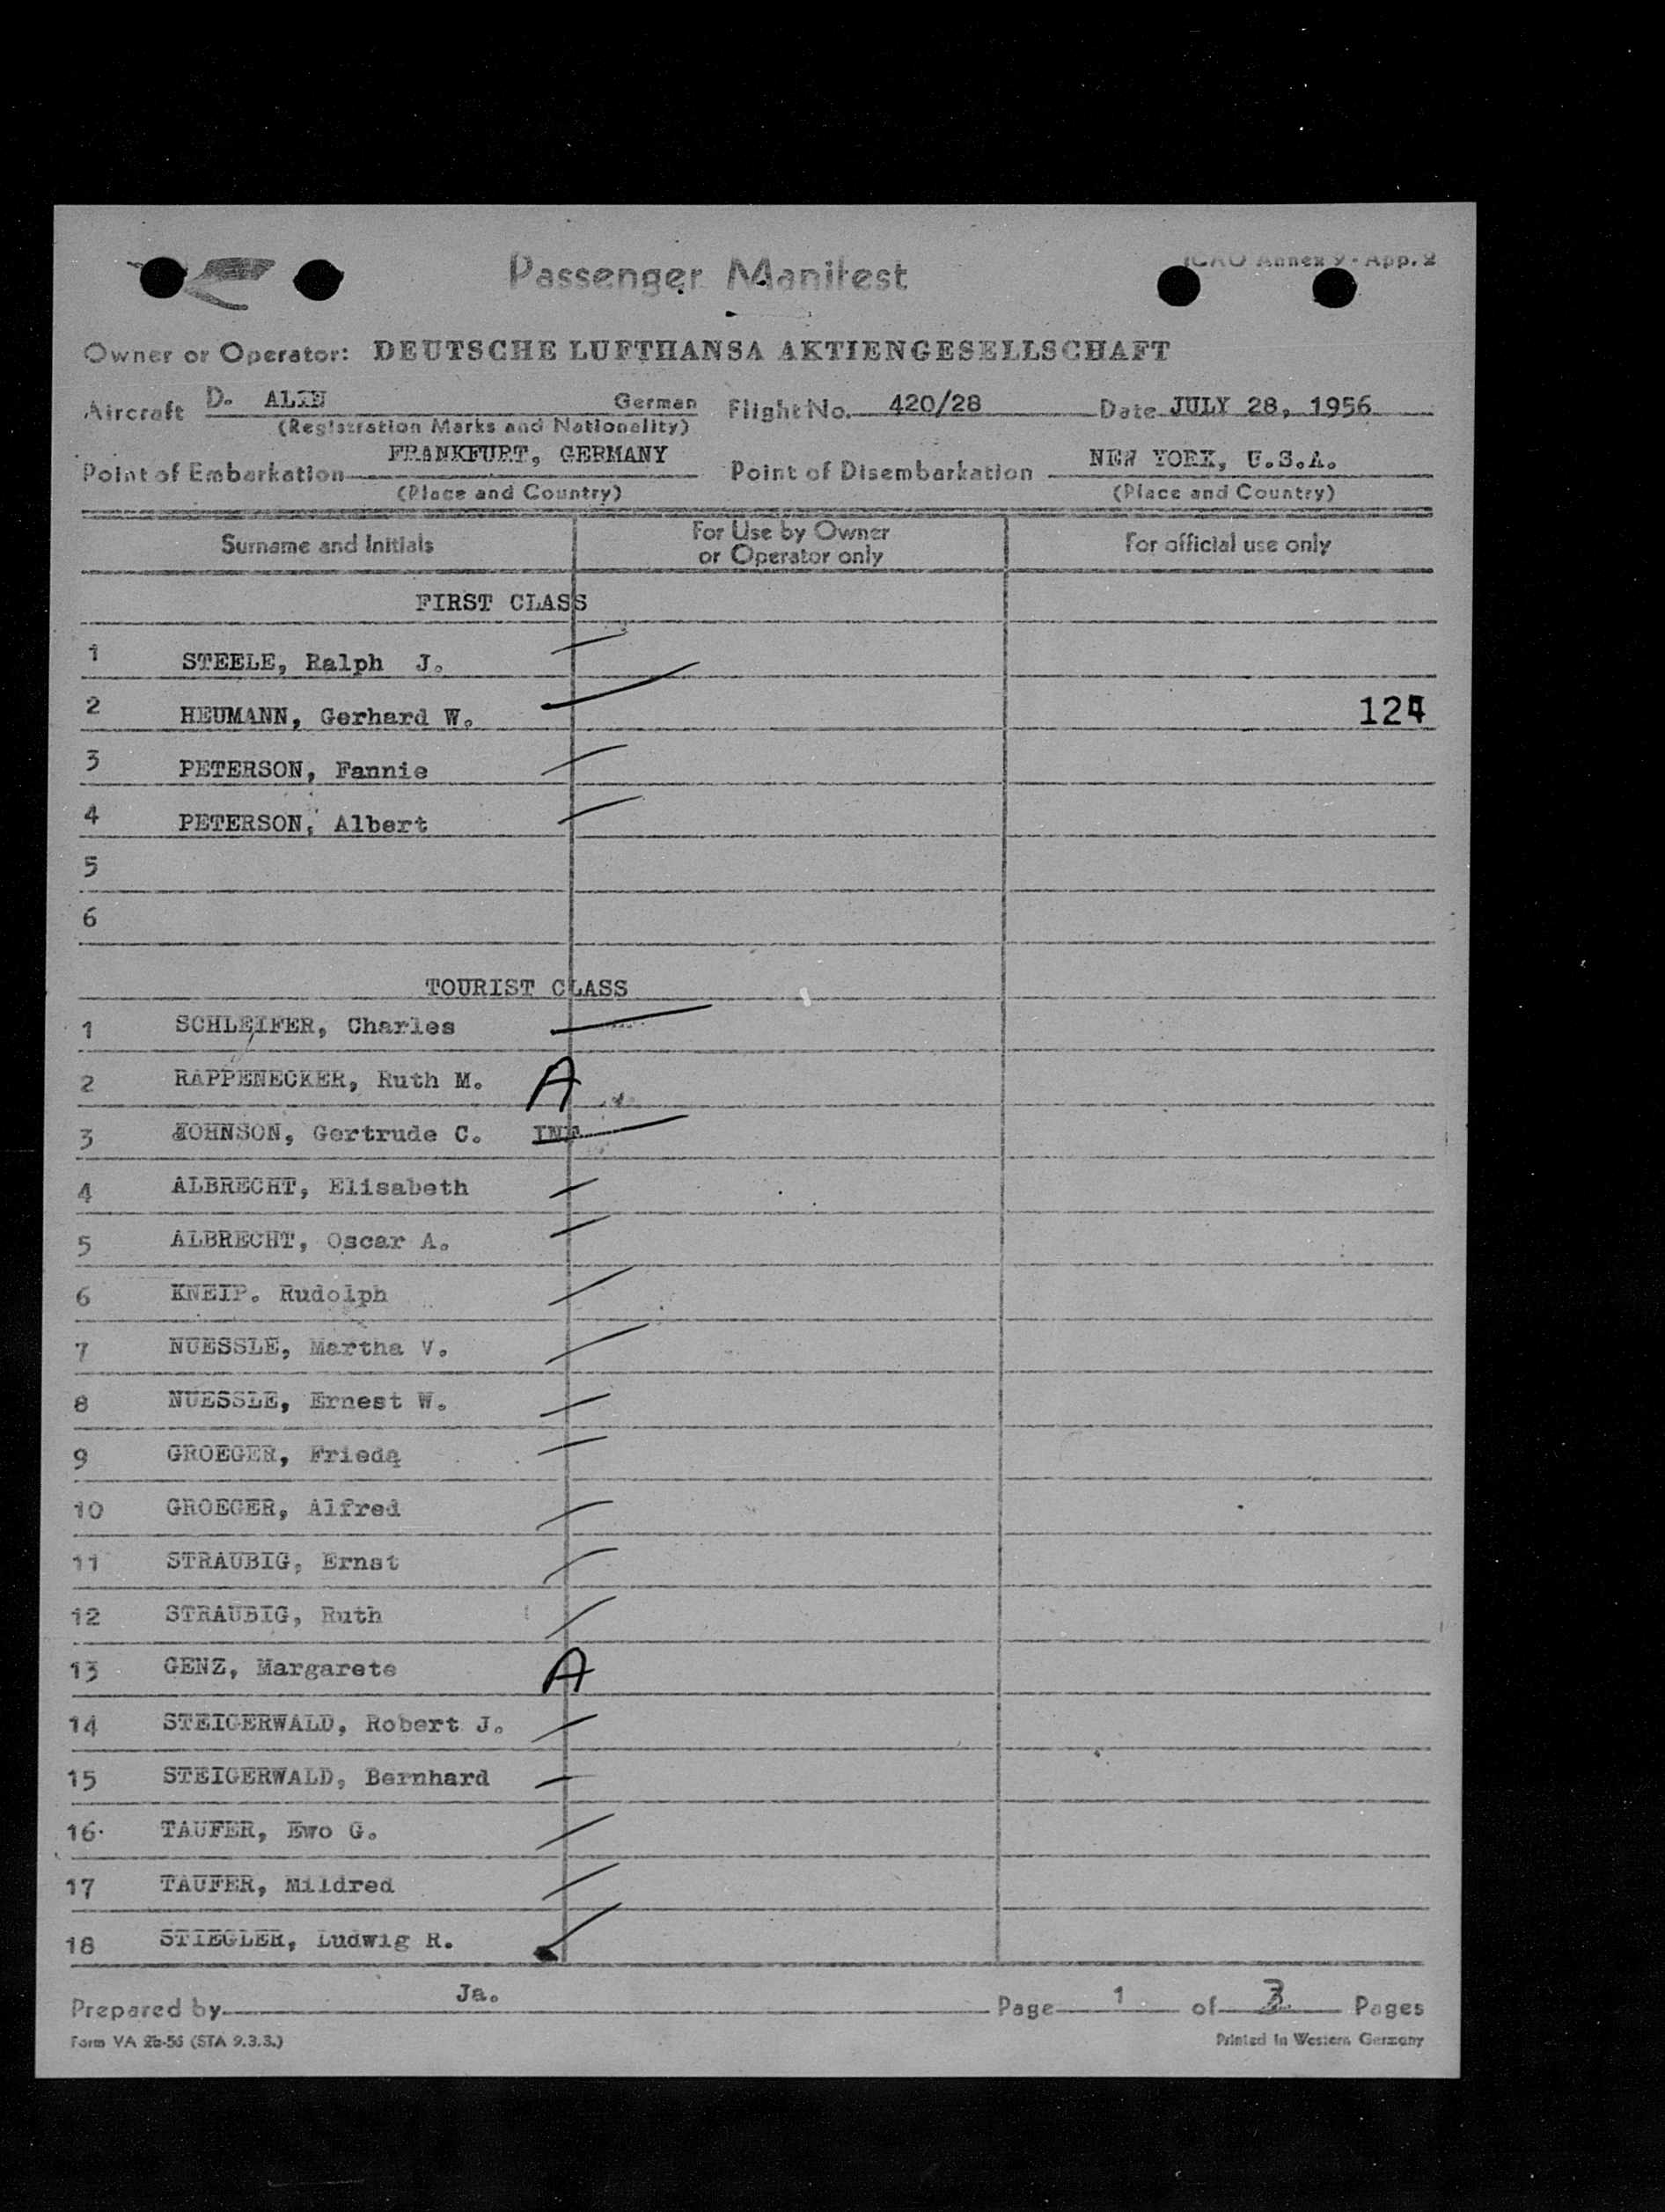 Passenger Manifest
ICAO Annex 9 - App. 2
Owner or Operator: DEUTSCHE LUFTHANSA AKTIENGESELLSCHAFT
Aircraft D. ALIN German Flight No. 420/28 Date JULY 28, 1956
(Registration Marks and Nationality)
Point of Embarkation FRANKFURT, GERMANY Point of Disembarkation NEW YORK, U.S.A.
(Place and Country) (Place and Country)
Surname and Initials For Use by Owner or Operator only For official use only
FIRST CLASS
1 STEELE, Ralph J.
2 HEUMANN, Gerhard W. 124
3 PETERSON, Fannie
4 PETERSON, Albert
5
6
TOURIST CLASS
1 SCHLEIFER, Charles
2 RAPPENECKER, Ruth M. A
3 JOHNSON, Gertrude C. INF
4 ALBRECHT, Elisabeth
5 ALBRECHT, Oscar A.
6 KNEIP. Rudolph
7 NUESSLE, Martha V.
8 NUESSLE, Ernest W.
9 GROEGER, Frieda
10 GROEGER, Alfred
11 STRAUBIG, Ernst
12 STRAUBIG, Ruth
13 GENZ, Margarete A
14 STEIGERWALD, Robert J.
15 STEIGERWALD, Bernhard
16 TAUFER, Ewo G.
17 TAUFER, Mildred
18 STIEGLER, Ludwig R.
Prepared by Ja. Page 1 of 3 Pages
Form VA 2b-55 (STA 9.3.3.) Printed in Western Germany